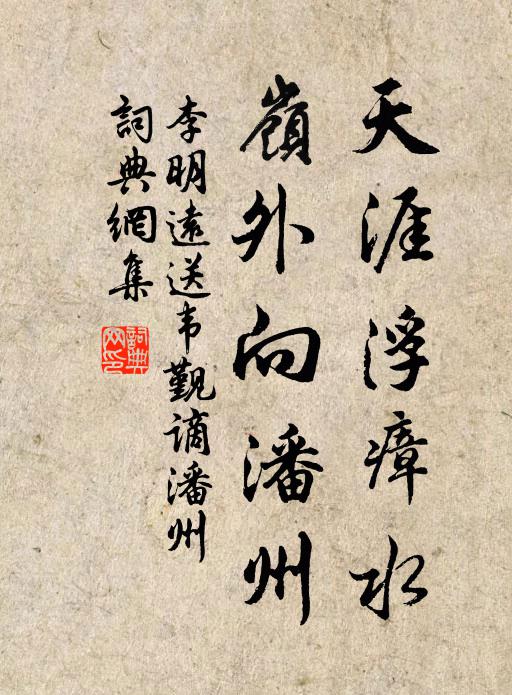 天涯浮瘴水
嶺外向潘州
李明遠送韦觐谪潘州
詞典網集
詞典网印